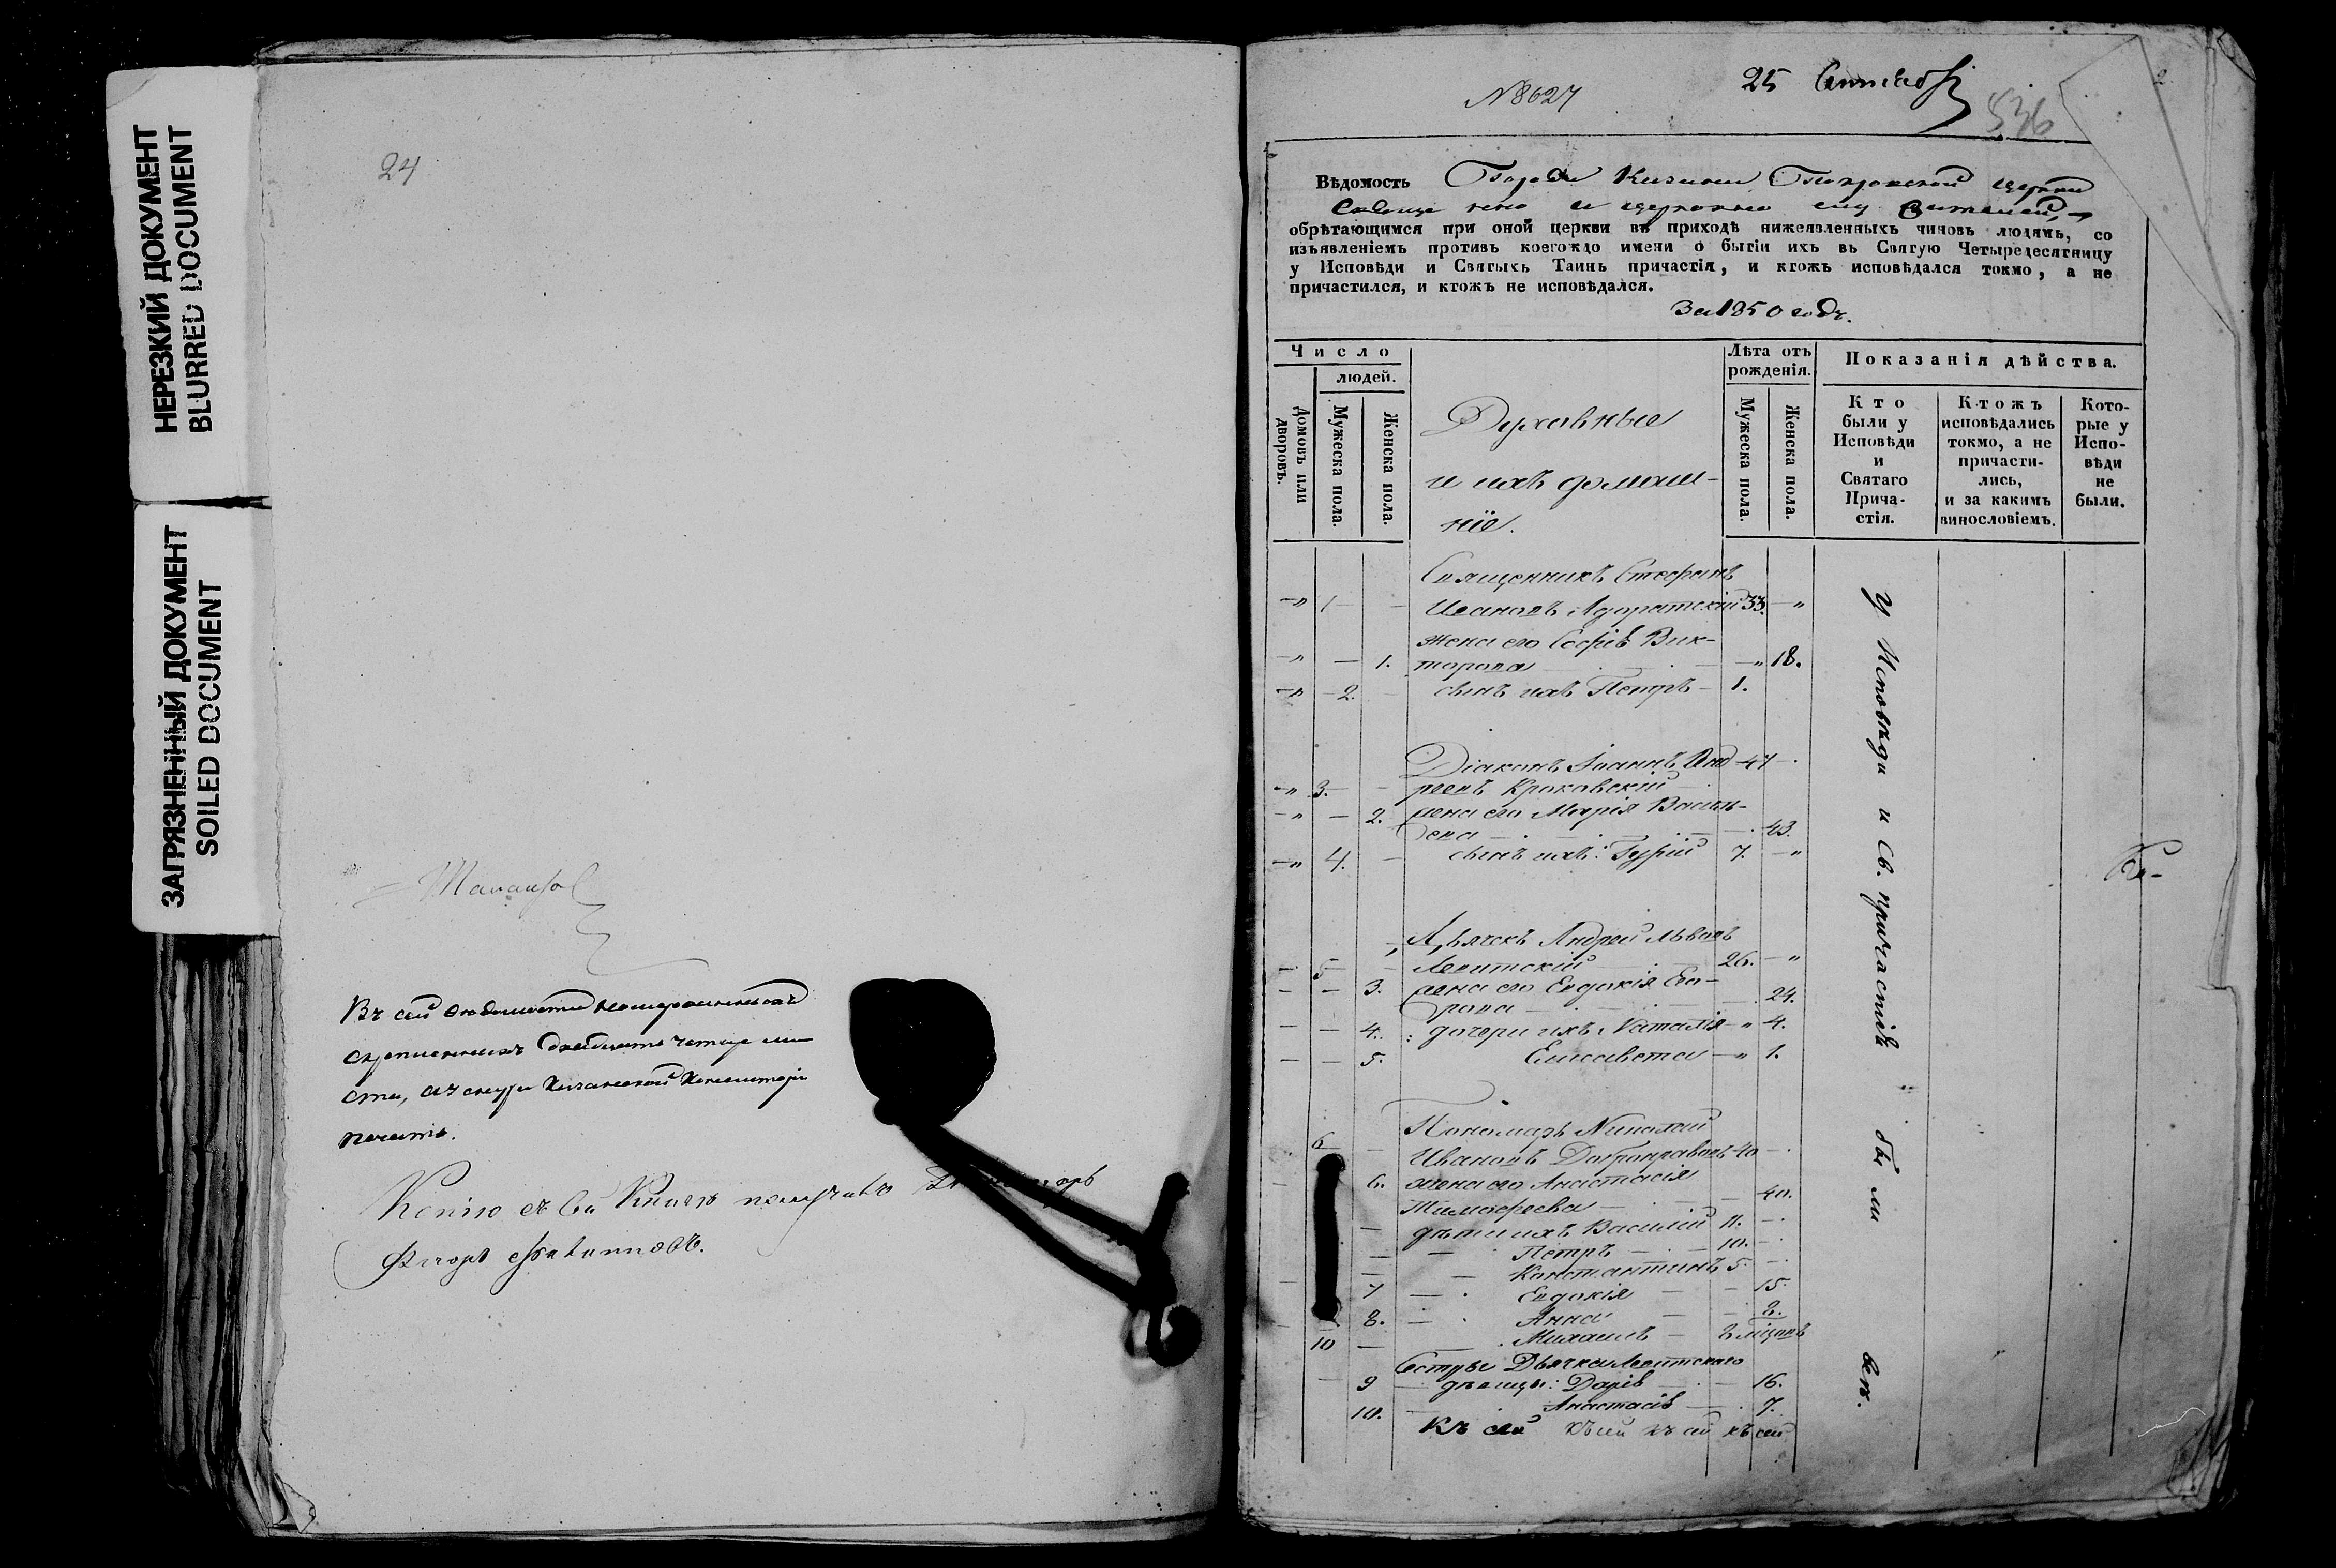 НЕРЕЗКИЙ ДОКУМЕНТ
BLURRED DOCUMENT
ЗАГРЯЗНЕННЫЙ ДОКУМЕНТ
SOILED DOCUMENT
24
Въ сей ведомости нумерованныхъ
скрепленныхъ двадцать четыре ли
ста, а у снура Казанской Консисторіи
печать.
Копію съ сей Книги получилъ
№ 8627
25 Сентября
536
2
Вѣдомость Города Казани Покровской церкви
священно и церковно служителей,
обрѣтающимся при оной церкви въ приходѣ нижеявленныхъ чиновъ людямъ, со
изъявленіемъ противъ коегождо имени о бытіи ихъ въ Святую Четыредесятницу
у Исповѣди и Святыхъ Таинъ причастія, и ктожъ исповѣдался токмо, а не
причастился, и ктожъ не исповѣдался.
За 1850 годъ.
Число
людей.
Домовъ или дворовъ.
Мужеска пола.
Женска пола.
Духовные
и ихъ домаш-
ніе.
Лѣта отъ рожденія.
Мужеска пола.
Женска пола.
Показанія дѣйства.
Кто были у Исповѣди и Святаго Прича-стія.
Ктожъ исповѣдались токмо, а не причасти-лись, и за какимъ винословіемъ.
Кото-рые у Испо-вѣди не были.
Священникъ Стефанъ
1 Ивановъ Адоратскій 33.
жена его Софія Вик-
1. торова 18.
2. сынъ ихъ Петръ 1.
Діаконъ Іоаннъ Анд 47
3. реевъ Кроковскій
2. жена его Марія Василь-
ева 43.
4. сынъ ихъ: Гурій 7.
Дьячекъ Андрей Львовъ
5 Левитскій 26.
3. жена его Евдокія Его-
рова 24.
4. дочери ихъ Наталія 4.
5. Елисавета 1.
Пономарь Николай
6 Ивановъ Добронравовъ 40
6. жена его Анастасія
Тимофеева 40.
дѣти ихъ Василій 11.
Петръ 10.
Константинъ 5.
7 Евдокія 15.
8. Анна 8.
10 Михаилъ
Сестры Дьячка Левитскаго
9 дѣвицы: Дарія 16.
10. Анастасія 7.
Къ сей къ сей къ сей къ сей
У Исповѣди и Св. причастія были всѣ.